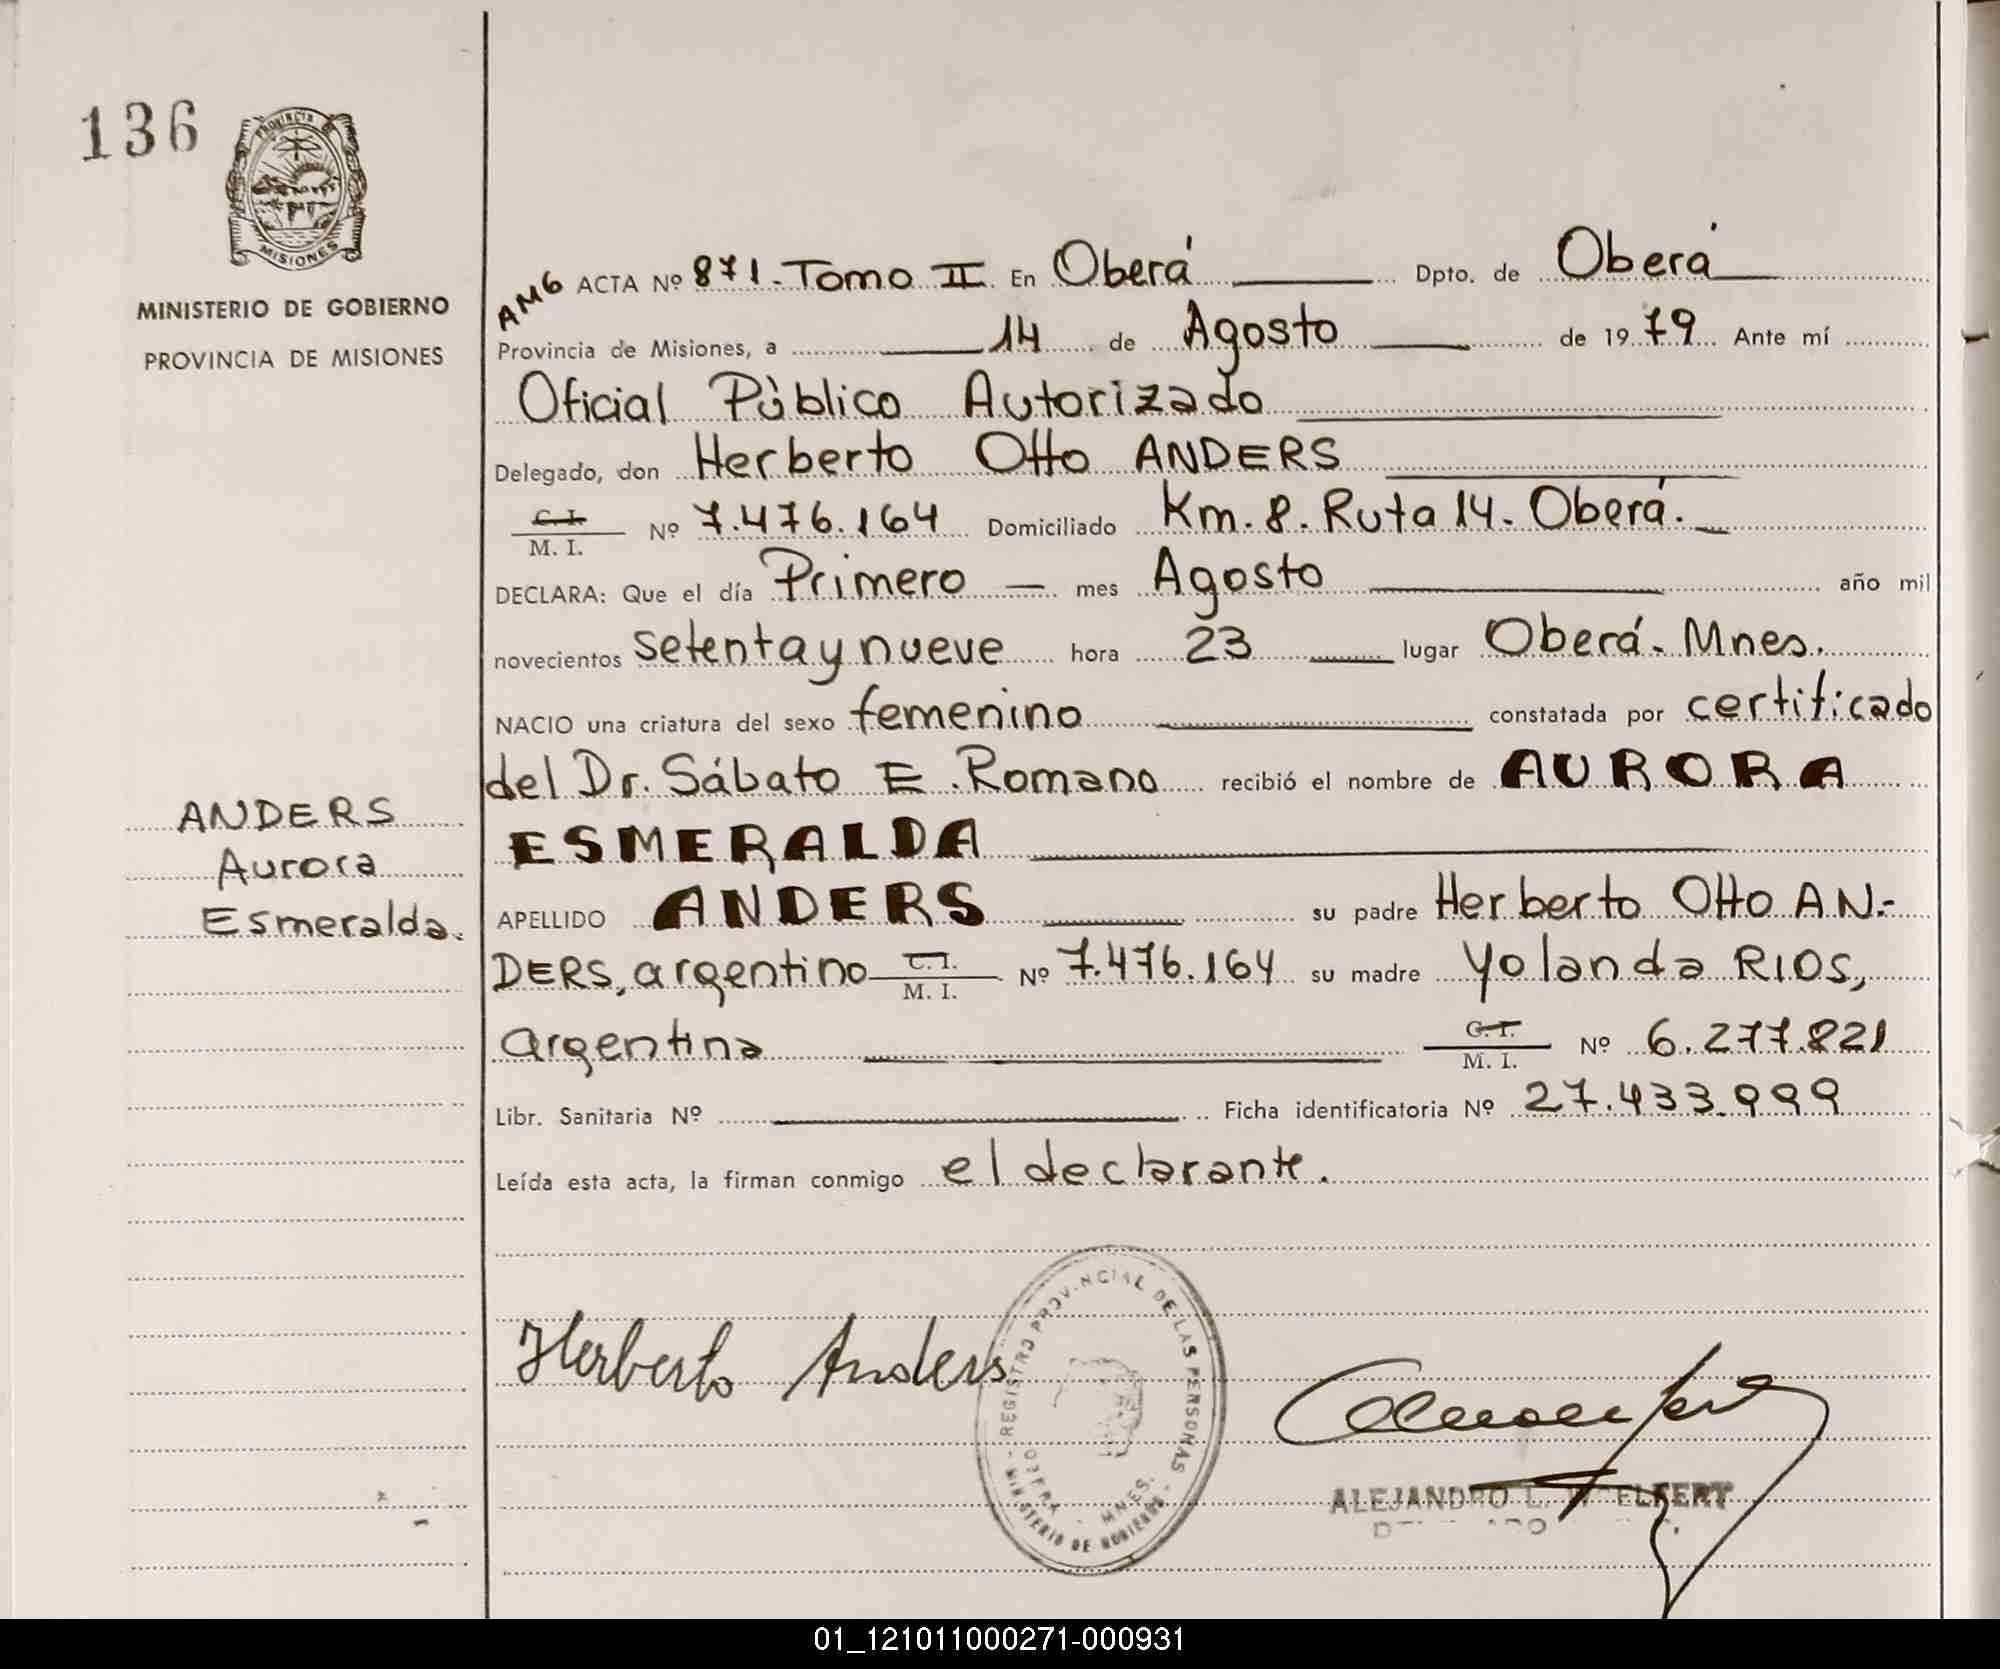 136
PROVINCIA DE
MISIONES
MINISTERIO DE GOBIERNO
PROVINCIA DE MISIONES
AMG ACTA Nº 871. Tomo II En Oberá Dpto. de Oberá
Provincia de Misiones, a 14 de Agosto de 1979 Ante mí
Oficial Público Autorizado
Delegado, don Herberto Otto ANDERS
C. I.
M. I. Nº 7.476.164 Domiciliado Km. 8. Ruta 14. Oberá.
DECLARA: Que el día Primero — mes Agosto año mil
novecientos setenta y nueve hora 23 lugar Oberá. Mnes.
NACIO una criatura del sexo femenino constatada por certificado
del Dr. Sábato E. Romano recibió el nombre de AURORA
ESMERALDA
APELLIDO ANDERS su padre Herberto Otto AN.-
DERS, argentino C. I.
M. I. Nº 7.476.164 su madre Yolanda RIOS,
argentina C. I.
M. I. Nº 6.277.821
Libr. Sanitaria Nº Ficha identificatoria Nº 27.433.999
Leída esta acta, la firman conmigo el declarante.
ANDERS
Aurora
Esmeralda.
Herberto Anders
- REGISTRO PROVINCIAL DE LAS PERSONAS -
MINISTERIO DE GOBIERNO
OBERA - MNES.
ALEJANDRO L. WOELFERT
01_121011000271-000931